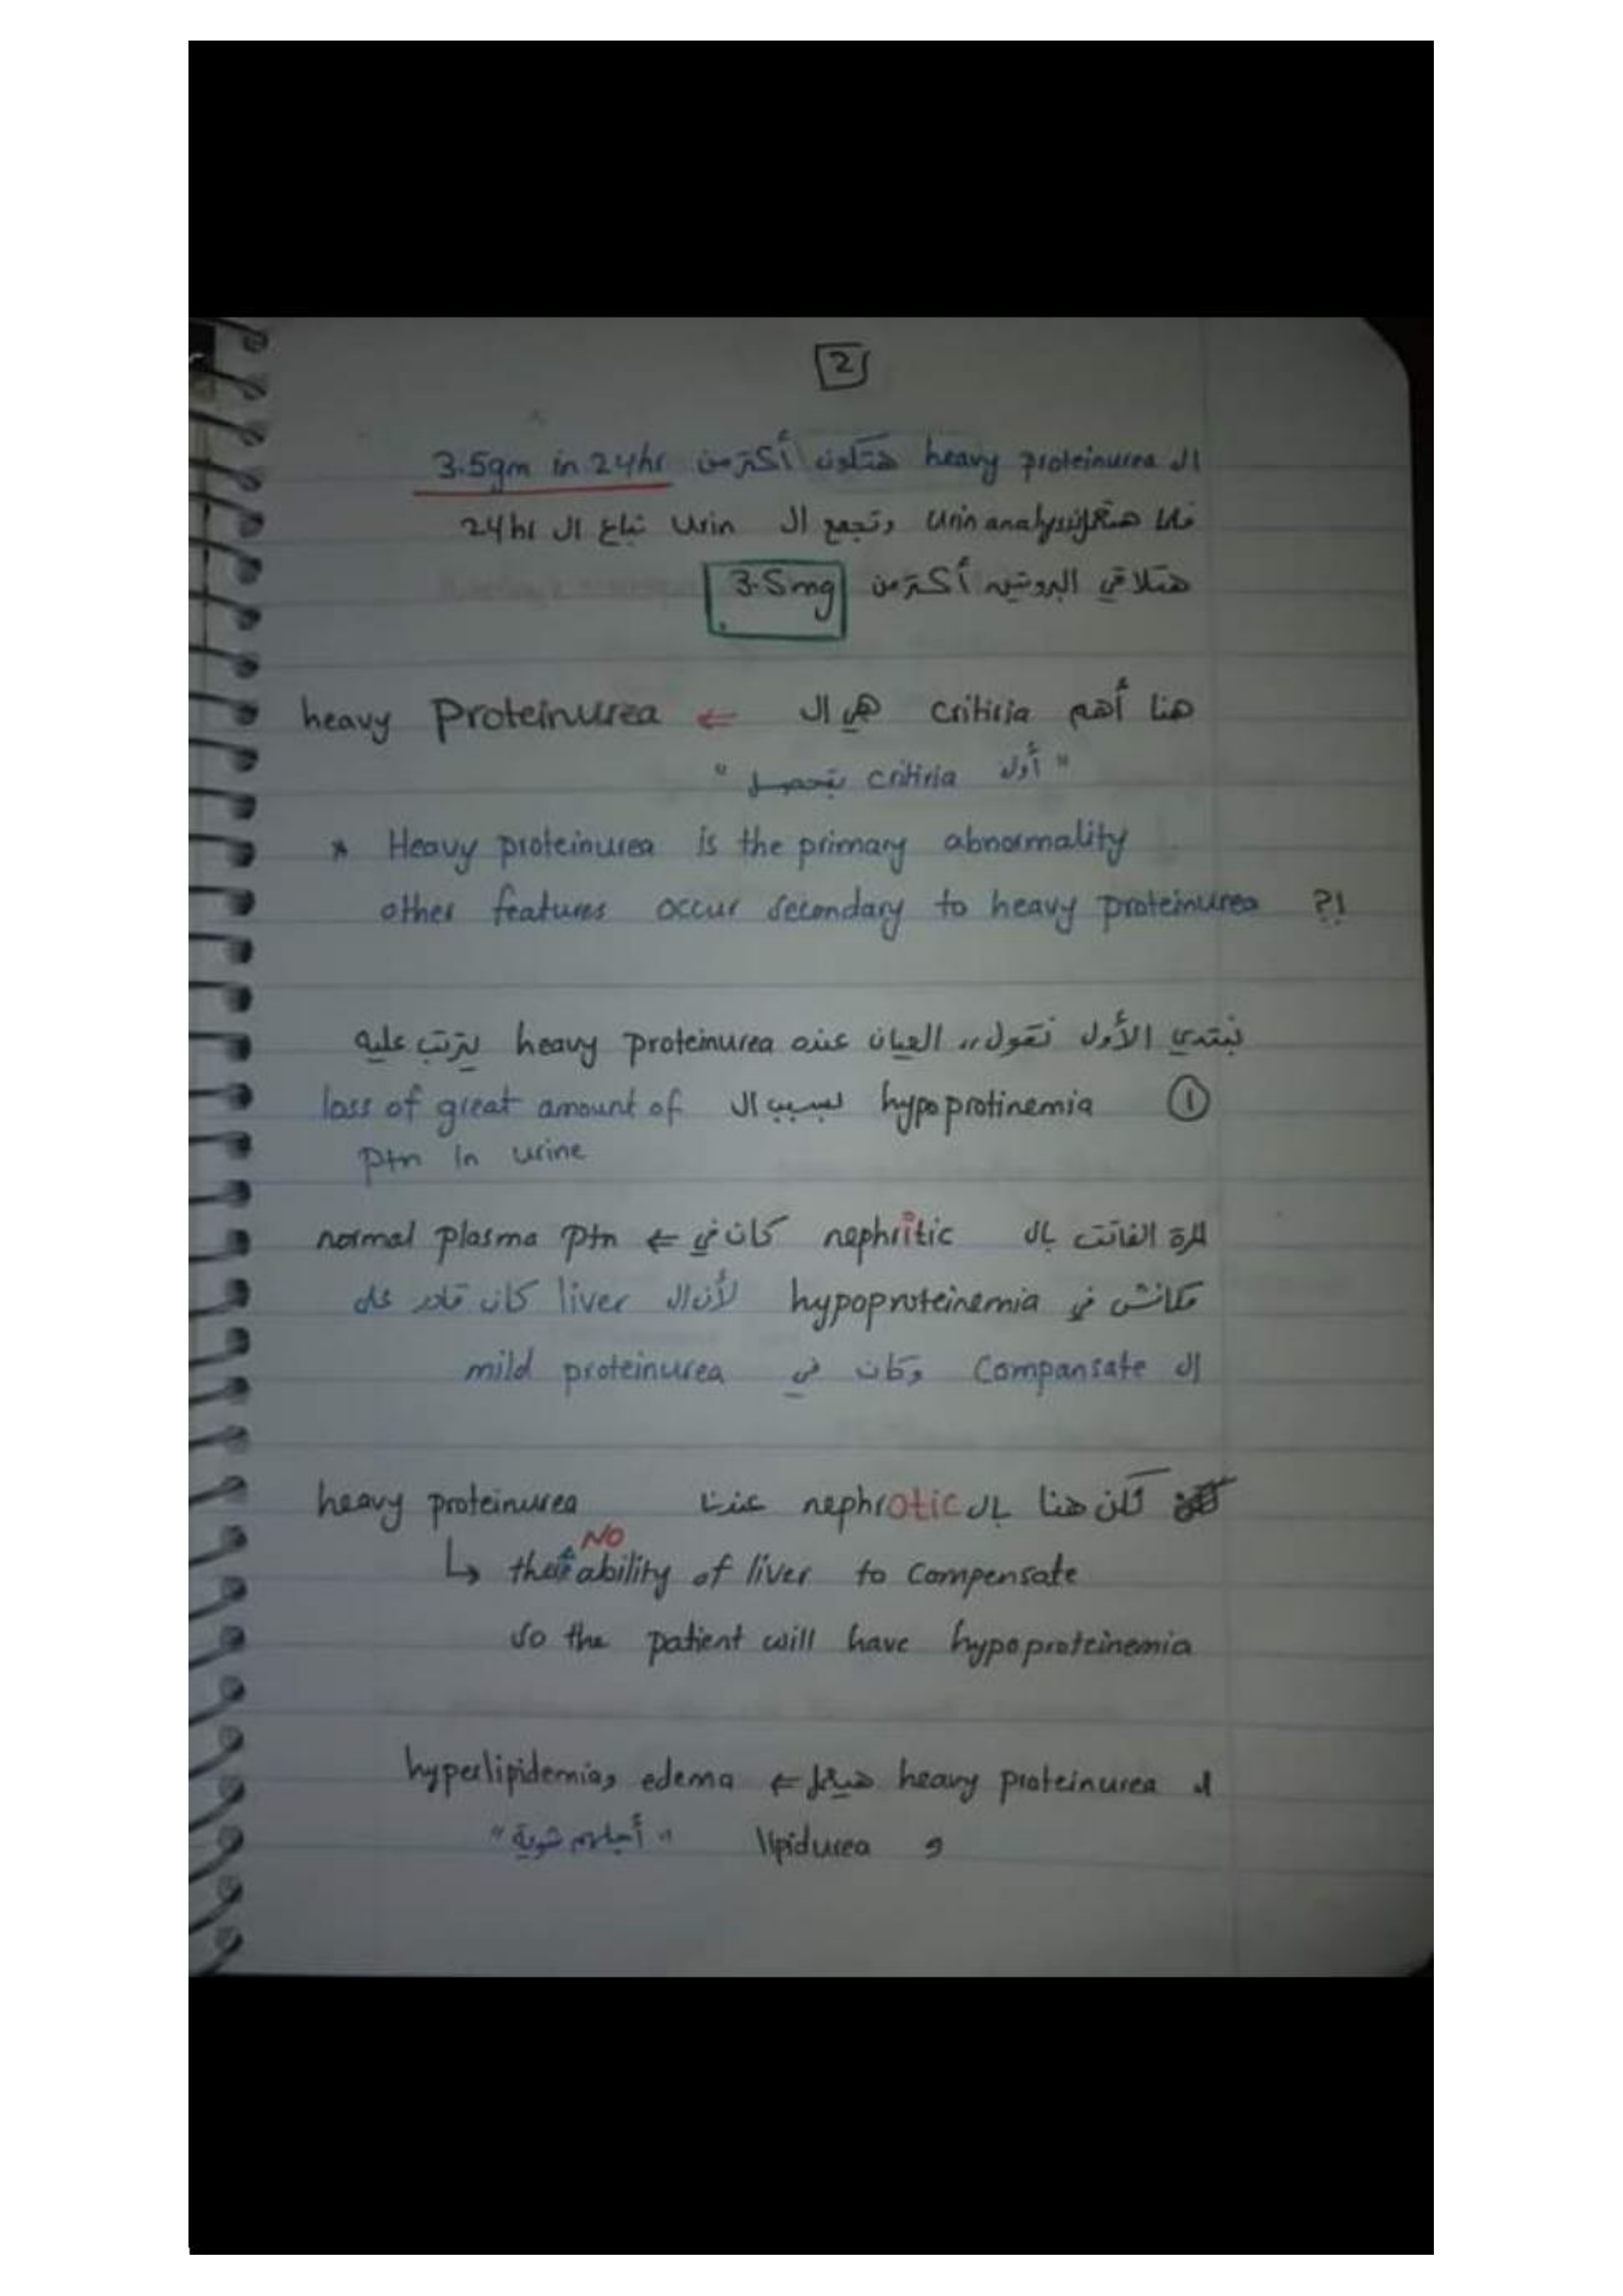 2
ال heavy proteinurea هتكون أكتر من 3.5gm in 24hr
فلما هتعمل urin analysis وتجمع ال urin تباع ال 24hr
هتلاقي البروتين أكتر من 3.5mg
هنا أهم critiria هي ال ← heavy Proteinurea
"أول critiria بتحصل"
* Heavy proteinurea is the primary abnormality
other features occur secondary to heavy proteinurea ?!
نبتدي الأول نقول,, العيان عنده heavy proteinurea يترتب عليه
① hypoprotinemia بسبب ال loss of great amount of
ptn in urine
المرة الفاتت بال nephritic كان في ← normal plasma ptn
مكانش في hypoproteinemia لأن ال liver كان قادر على
ال Compansate وكان في mild proteinurea
لكن هنا بال nephrotic عندنا heavy proteinurea
↳ the NO ability of liver to compensate
so the patient will have hypoproteinemia
ال heavy proteinurea هيعمل ← hyperlipidemia, edema
و lipidurea "أجلهم شوية"